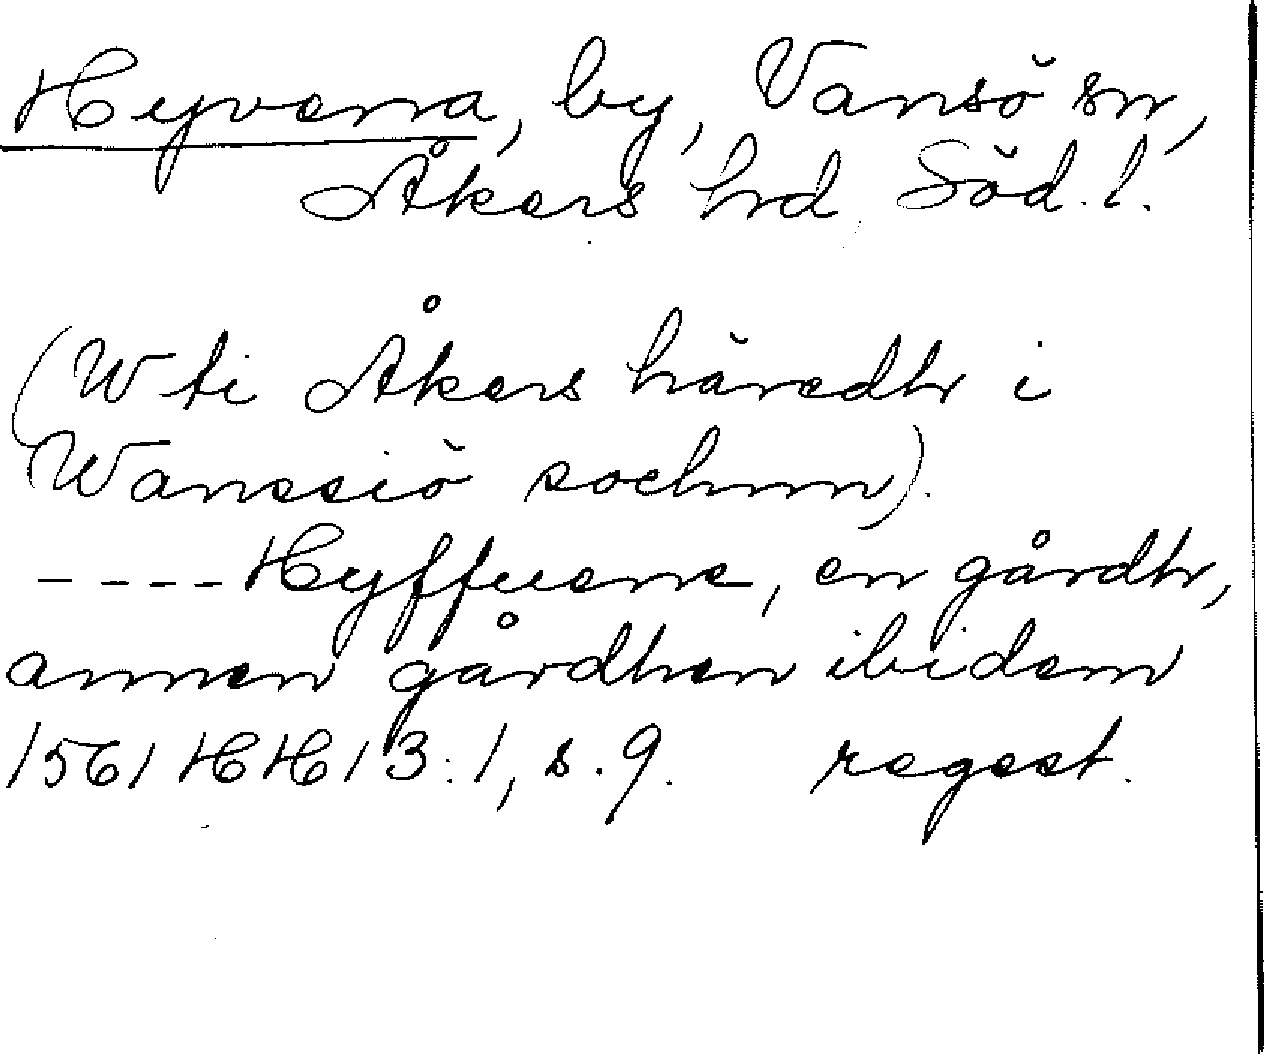 Hyvena, by, Vansö sn,
Åkers hrd, Söd.l.
(W ti Åkers häredhr i
Wanssiö sochnn).
----Hyffuene, en gårdhr,
annen gårdhen ibidem
1561 HH 13:1, s. 9. regest.